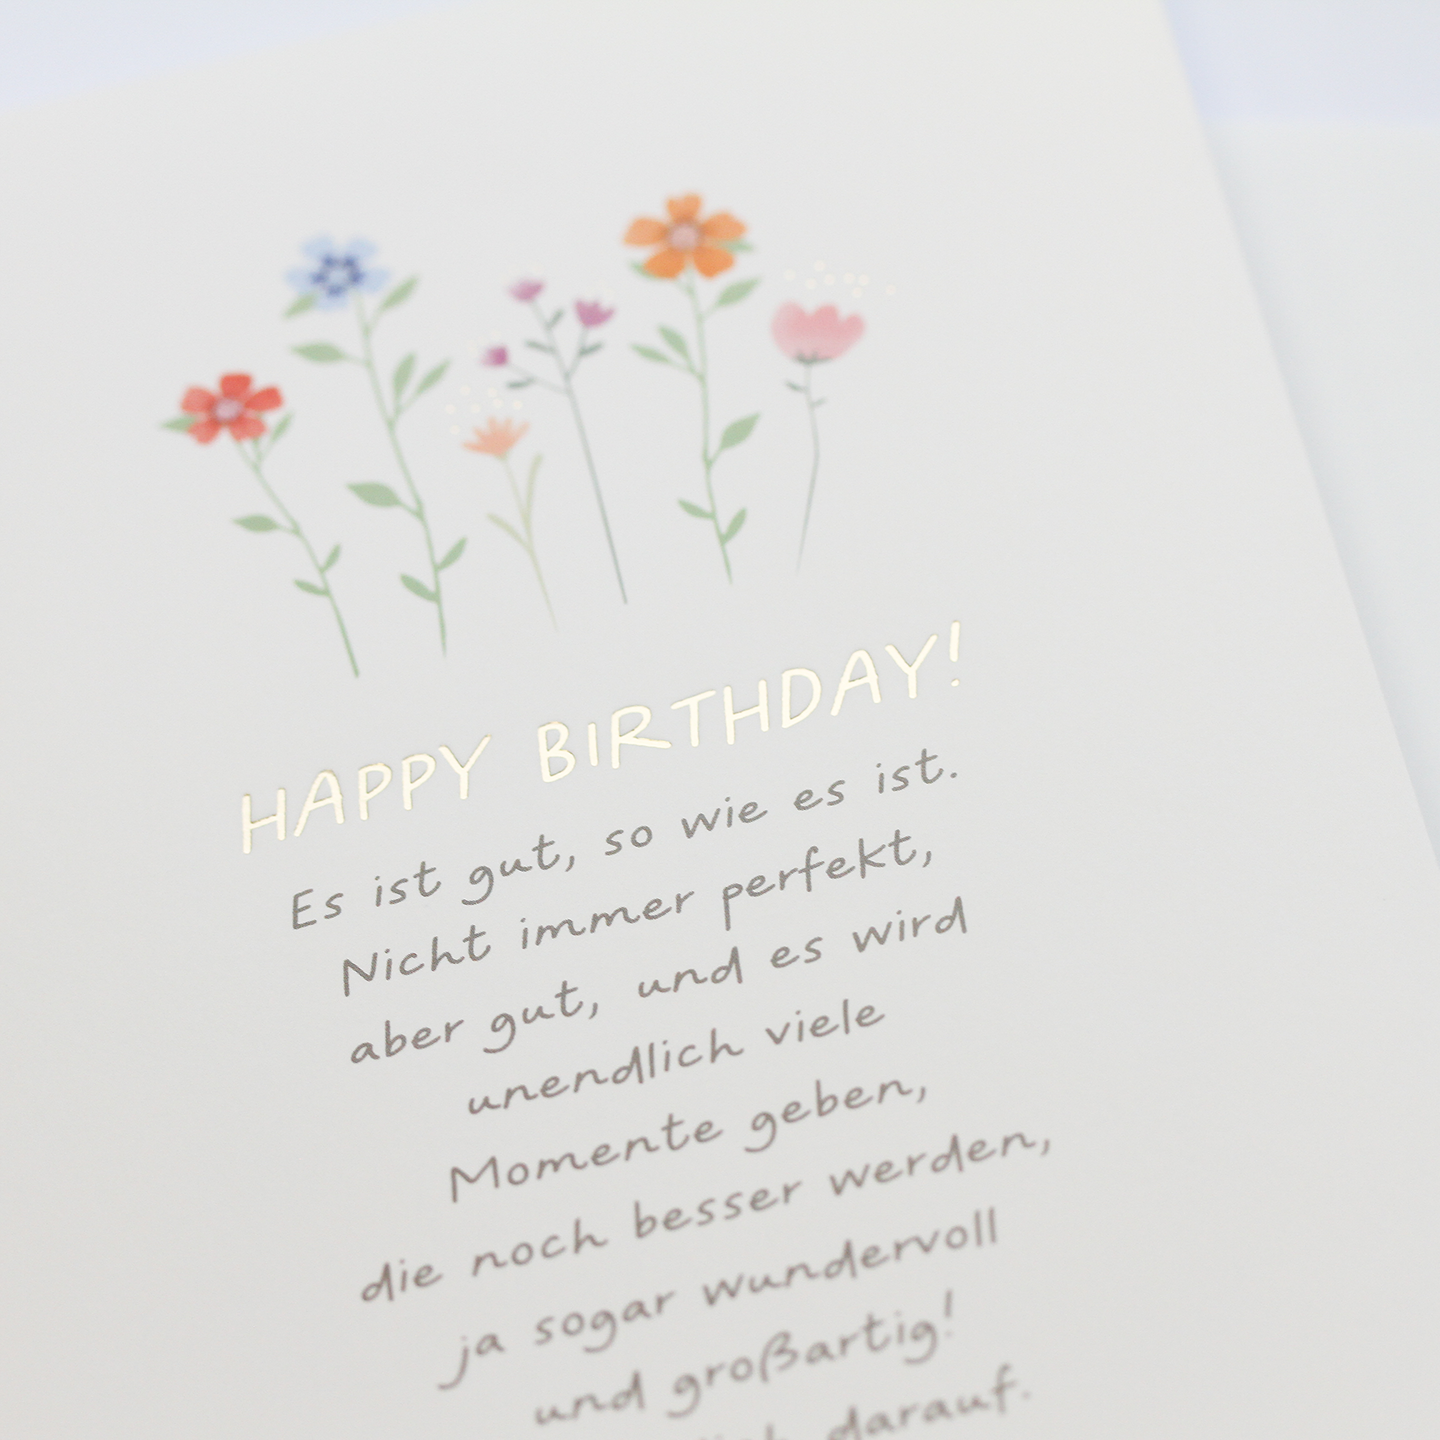 HAPPY BIRTHDAY!
Es ist gut, so wie es ist.
Nicht immer perfekt,
aber gut, und es wird
unendlich viele
Momente geben,
die noch besser werden,
ja sogar wundervoll
und großartig!
darauf.